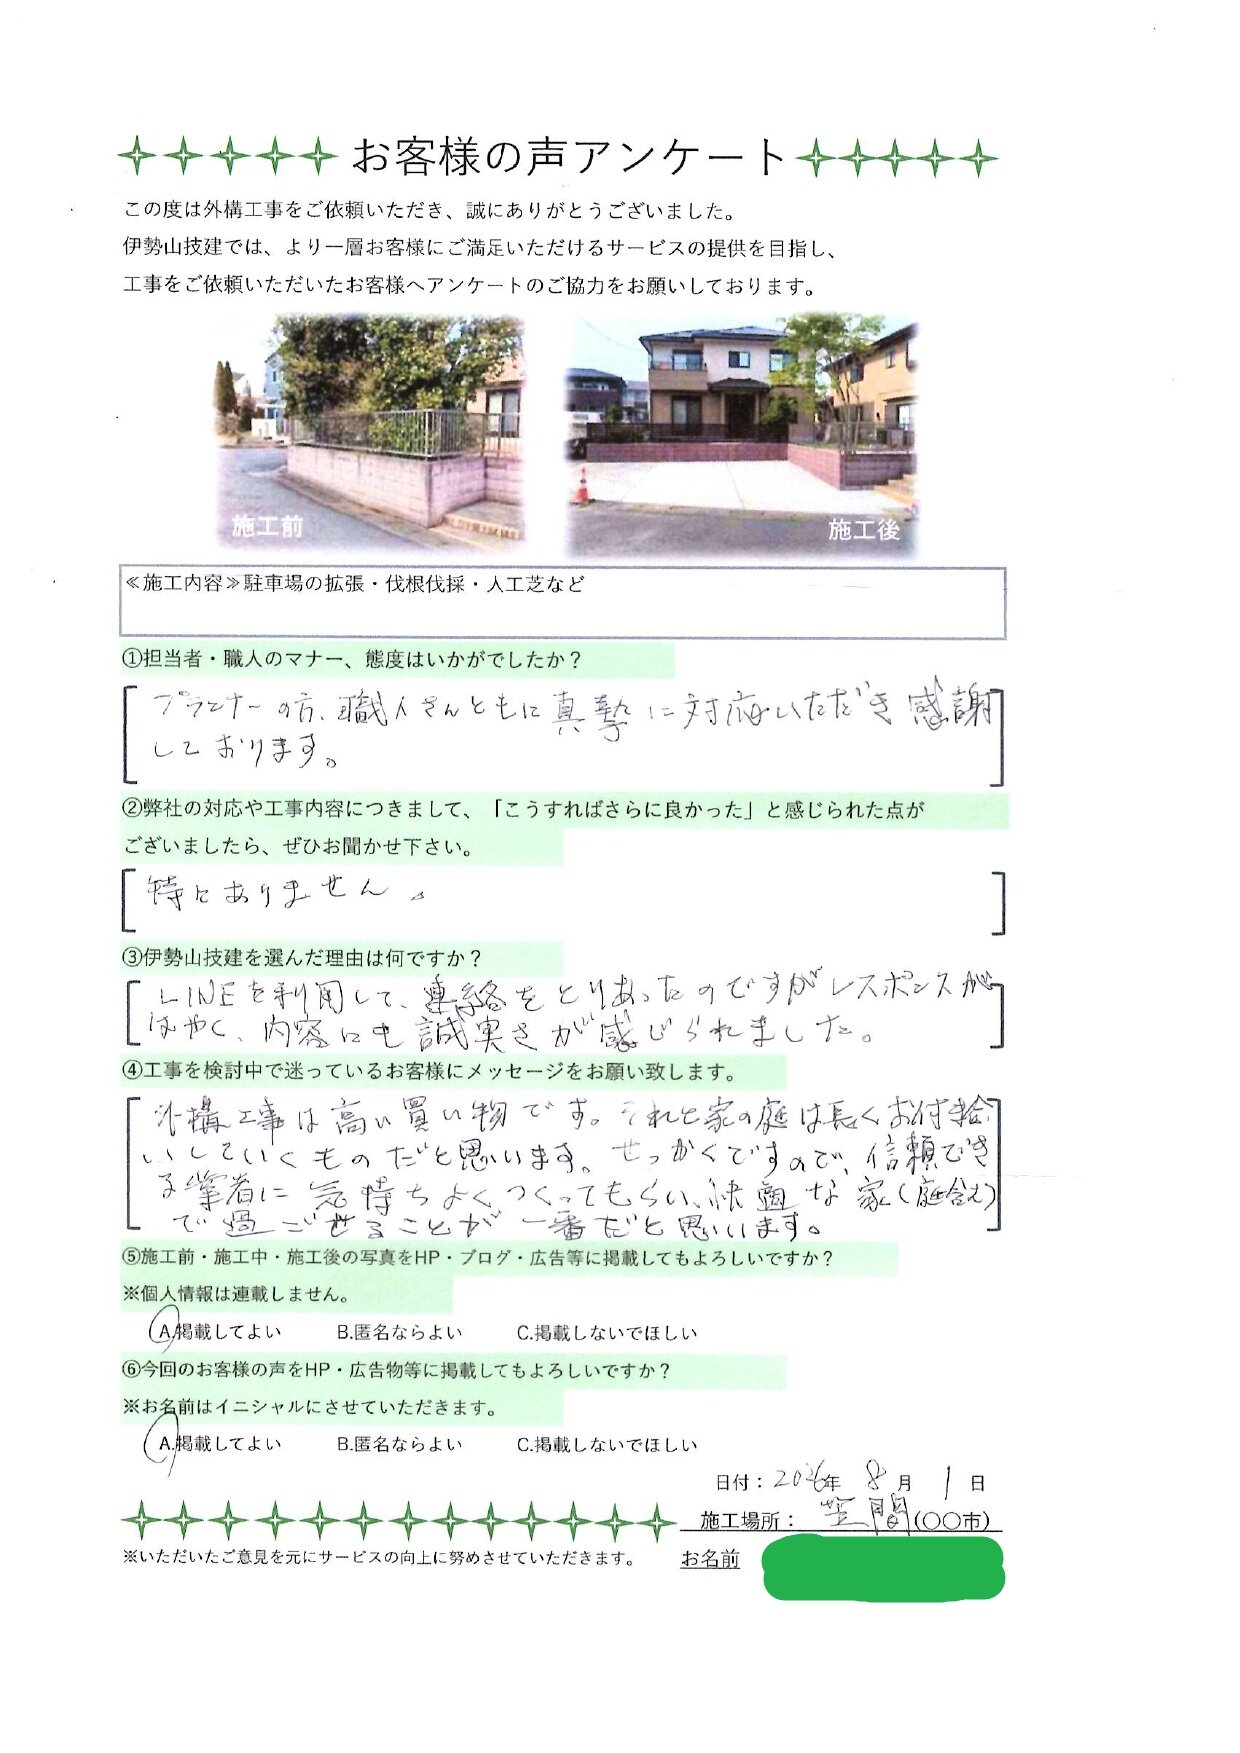 お客様の声アンケート
この度は外構工事をご依頼いただき、誠にありがとうございました。
伊勢山技建では、より一層お客様にご満足いただけるサービスの提供を目指し、
工事をご依頼いただいたお客様へアンケートのご協力をお願いしております。
施工前
施工後
≪施工内容≫駐車場の拡張・伐根伐採・人工芝など
①担当者・職人のマナー、態度はいかがでしたか？
プランナーの方、職人さんともに真摯に対応いただき感謝
しております。
②弊社の対応や工事内容につきまして、「こうすればさらに良かった」と感じられた点が
ございましたら、ぜひお聞かせ下さい。
特にありません。
③伊勢山技建を選んだ理由は何ですか？
LINEを利用して、連絡をとりあったのですがレスポンスが
はやく、内容にも誠実さが感じられました。
④工事を検討中で迷っているお客様にメッセージをお願い致します。
外構工事は高い買い物です。それと家の庭は長くお付き合
いしていくものだと思います。せっかくですので、信頼でき
る業者に気持ちよくつくってもらい、快適な家(庭含む)
で過ごせることが一番だと思います。
⑤施工前・施工中・施工後の写真をHP・ブログ・広告等に掲載してもよろしいですか？
※個人情報は連載しません。
A.掲載してよい B.匿名ならよい C.掲載しないでほしい
⑥今回のお客様の声をHP・広告物等に掲載してもよろしいですか？
※お名前はイニシャルにさせていただきます。
A.掲載してよい B.匿名ならよい C.掲載しないでほしい
日付：年 8月 1日
施工場所： 笠間(〇〇市)
※いただいたご意見を元にサービスの向上に努めさせていただきます。 お名前